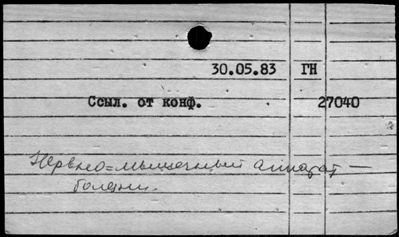 30.05.83 ГН
Ссыл. от конф. 27040
Нервно=мышечный аппарат —
болезни.